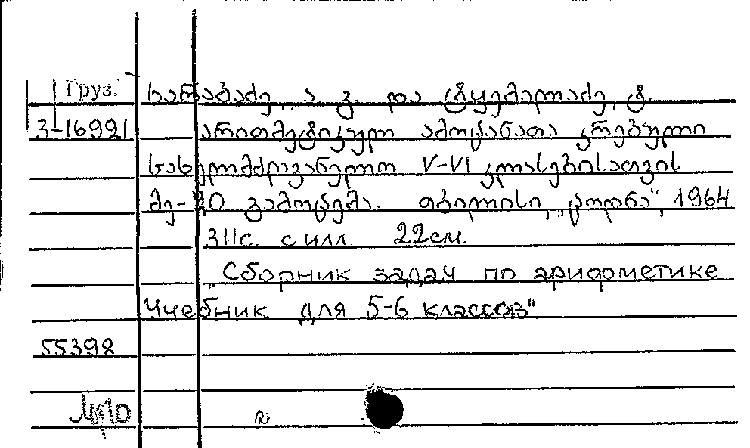 Груз.
ა. ვ. და
3-16991 არითმეტიკულ ამოცანათა კრებული
სახელმძღვანელო V-VI კლასებისათვის
მე-10 გამოცემა. თბილისი, „ცოდნა", 1964
311с. с илл. 22 см.
„Сборник задач по арифметике
Учебник для 5-6 классов"
55398